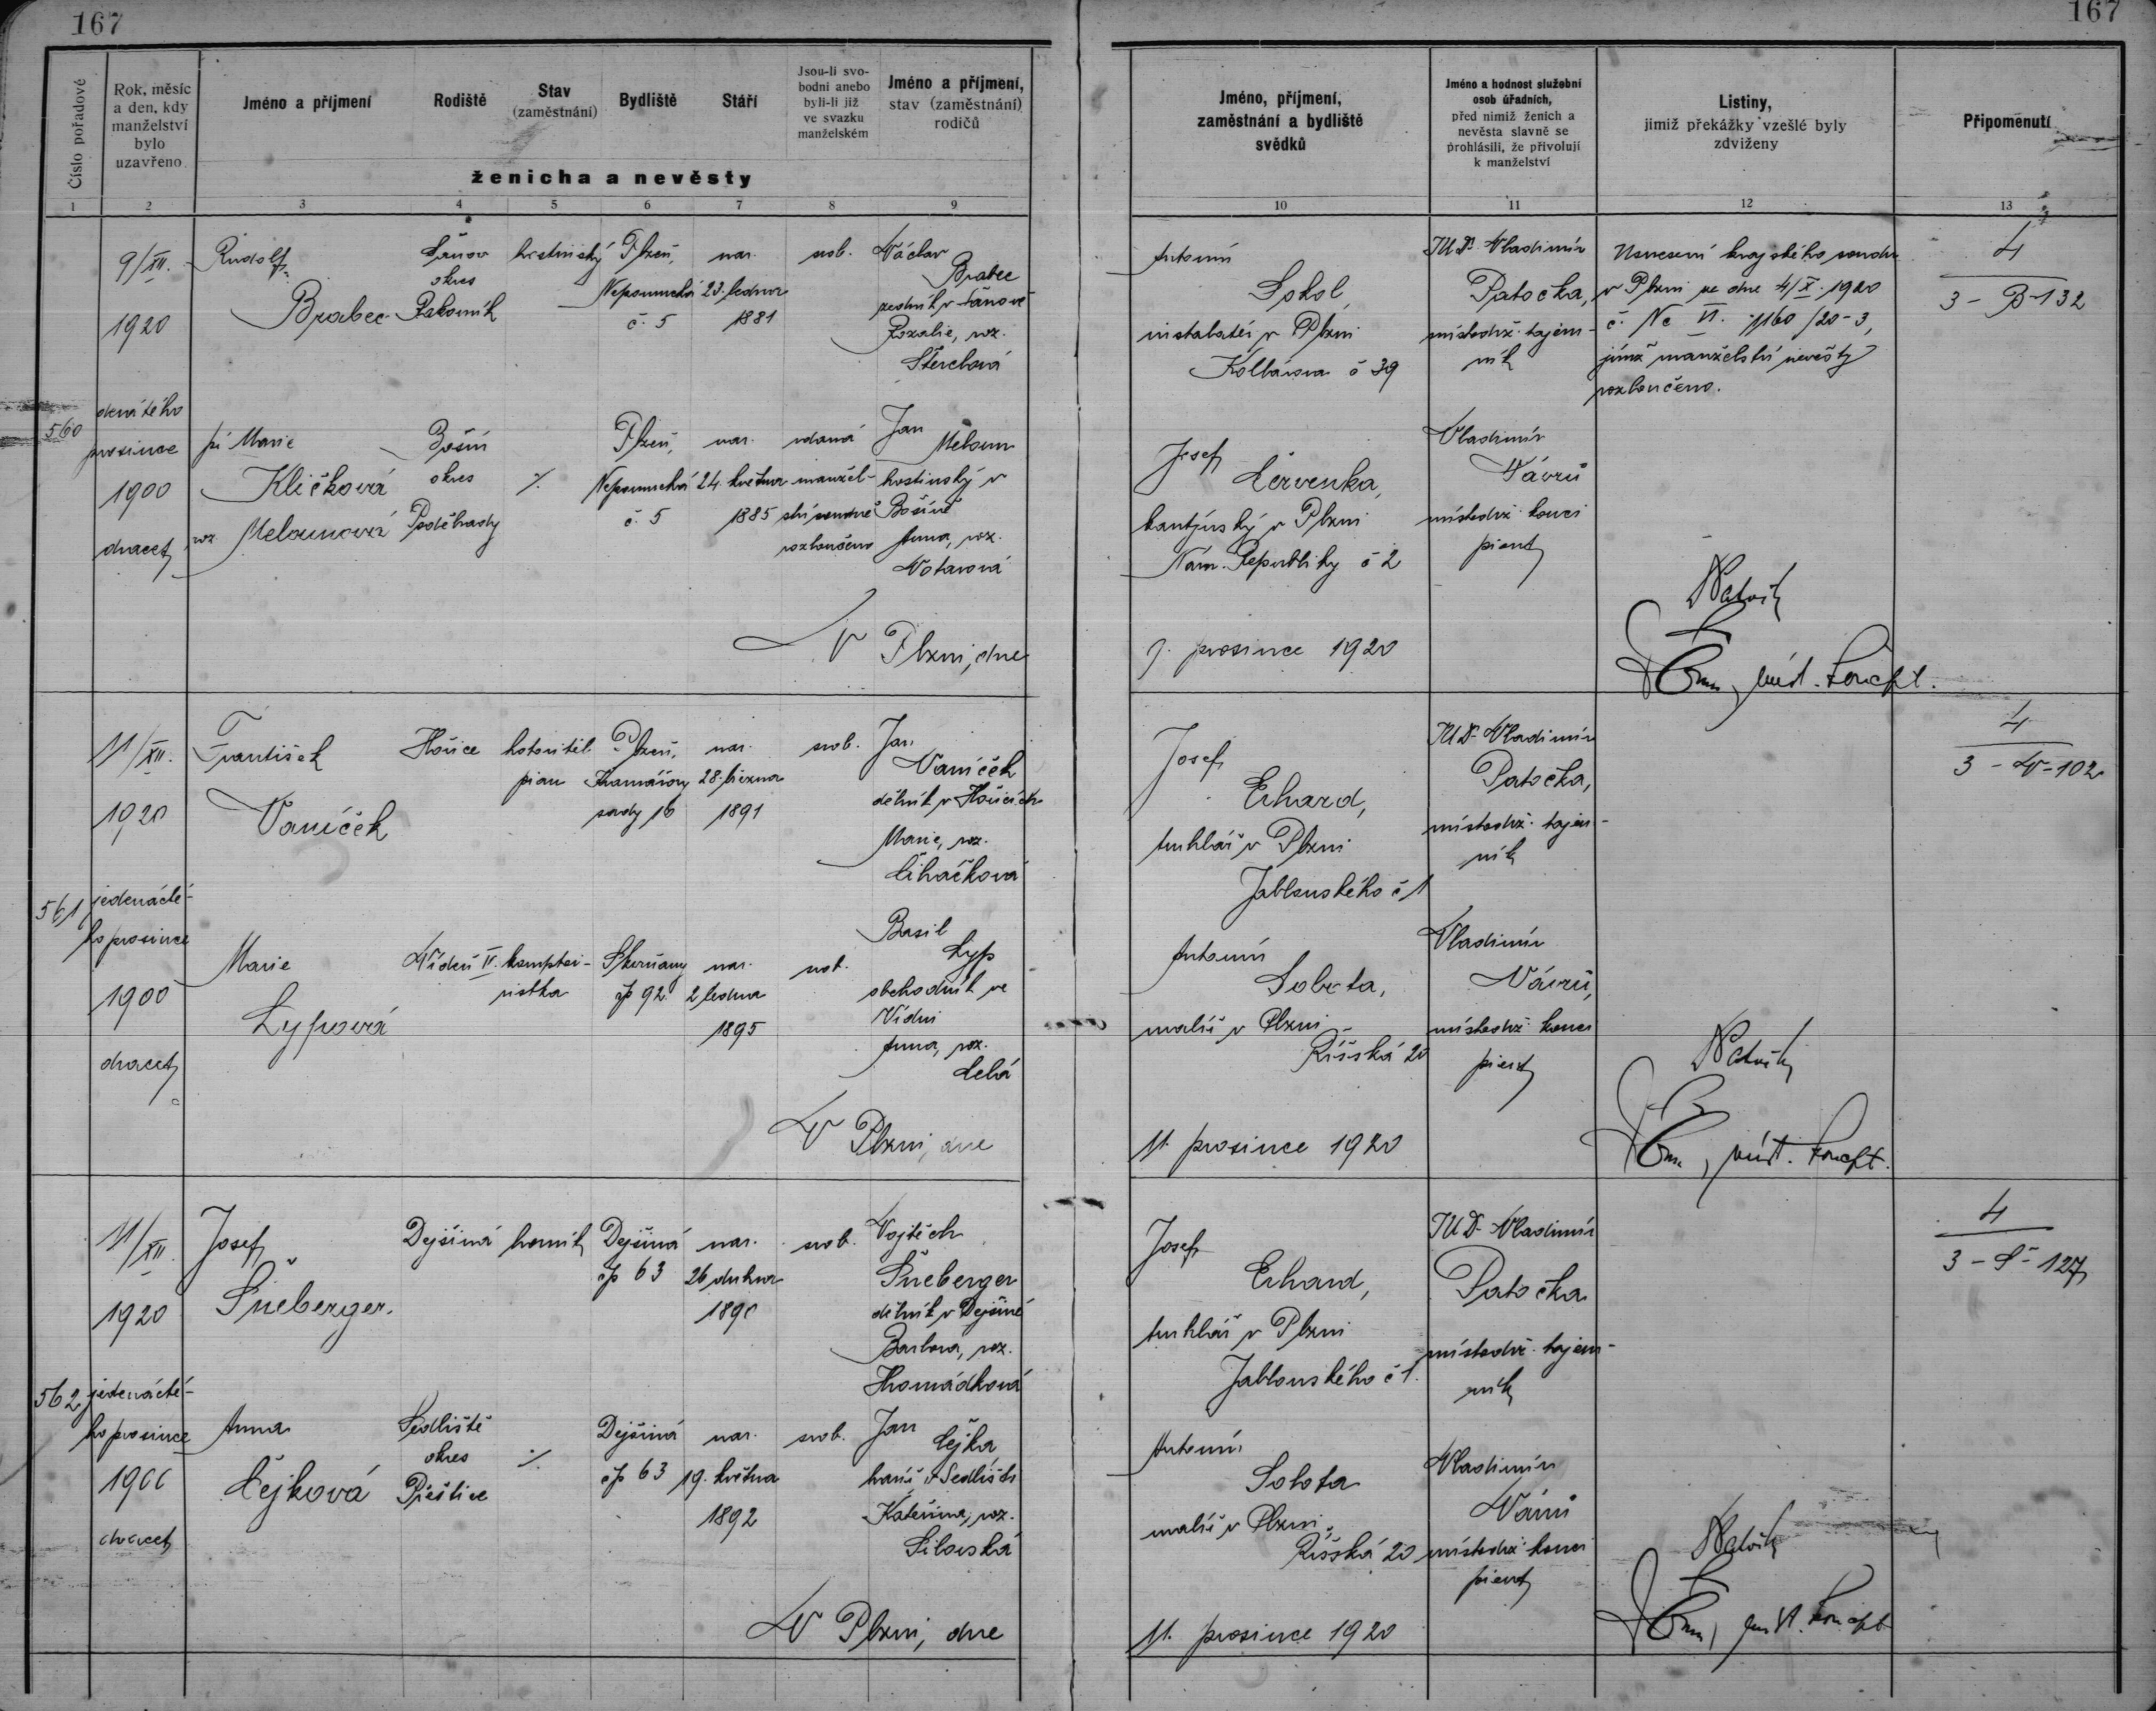 167
167
Číslo pořadové
Rok, měsíc
a den, kdy
manželství
bylo
uzavřeno
Jméno a příjmení
Rodiště
Stav
(zaměstnání)
Bydliště
Stáří
Jsou-li svo-
bodni anebo
byli-li již
ve svazku
manželském
Jméno a příjmení,
stav (zaměstnání)
rodičů
ženicha a nevěsty
Jméno, příjmení,
zaměstnání a bydliště
svědků
Jméno a hodnost služební
osob úřadních,
před nimiž ženich a
nevěsta slavně se
prohlásili, že přivolují
k manželství
Listiny,
jimiž překážky vzešlé byly
zdviženy
Připomenutí
1 2 3 4 5 6 7 8 9 10 11 12 13
560
9/XII.
1920
devátého
prosince
1900
dvacet
Rudolf
Brabec
okres
Rakovník
hostinský
Plzeň,
Nepomucká
č. 5
nar.
23. ledna
1881
svob.
Václav
Brabec
zedník v
Rozalie, roz.
Antonín
Sokol,
instalatér v Plzni
Kollárova č 39
JUDr Vladimír
Patočka,
místodrž. tajem-
ník
Usnesení krajského soudu
v Plzni ze dne 4/X 1920
č. Nc VI. 1160/20-3,
jímž manželství nevěsty
rozloučeno.
4
3 - B-132
pí Marie
Kličková
roz. Melounová
okres
Poděbrady
%
Plzeň,
Nepomucká
č. 5
nar.
24. května
1885
vdaná
manžel-
ství soudně
rozloučeno
Jan
Meloun
hostinský v
Anna, roz.
Josef
Červenka,
kantýnský v Plzni
Nám. Republiky č 2
Vladimír
Návrů
místodrž. konci
pient
V Plzni, dne
9. prosince 1920
561
11/XII.
1920
jedenácté-
ho prosince
1900
dvacet
František
Vaníček
Hořice
hotovitel
pian
Plzeň,
sady 16
nar.
28. března
1891
svob.
Jan
Vaníček
dělník v Hořicích
Marie, roz.
Čiháčková
Josef
Erhard,
truhlář v Plzni
Jablonského č 1
JUDr Vladimír
Patočka,
místodrž. tajem-
ník
4
3 - V-102
Marie
Lypová
Vídeň II.
komptoi-
ristka
Skvrňany
čp 92
nar.
2 ledna
1895
svob.
Basil
Lyp
obchodník ve
Vídni
Anna, roz.
Antonín
Sobota,
malíř v Plzni
Říšská 20
Vladimír
Návrů,
místodrž. konci
pient
V Plzni, dne
11. prosince 1920
562
11/XII.
1920
jedenácté-
ho prosince
1900
dvacet
Josef
Šneberger.
Dejšiná
horník
Dejšiná
čp 63
nar.
26 dubna
1890
svob.
Vojtěch
Šneberger
dělník v Dejšiné
Barbora, roz.
Hromádková
Josef
Erhard,
truhlář v Plzni
Jablonského č 1.
JUDr Vladimír
Patočka
místodrž. tajem-
ník
4
3 - Š - 127
Anna
Čejková
Sedliště
okres
Přeštice
%
Dejšiná
čp 63
nar.
19. května
1892
svob.
Jan
Čejka
Kateřina, roz.
Antonín
Sobota
malíř v Plzni,
Říšská 20
Vladimír
Návrů
místodrž. konci
pient
V Plzni, dne
11. prosince 1920